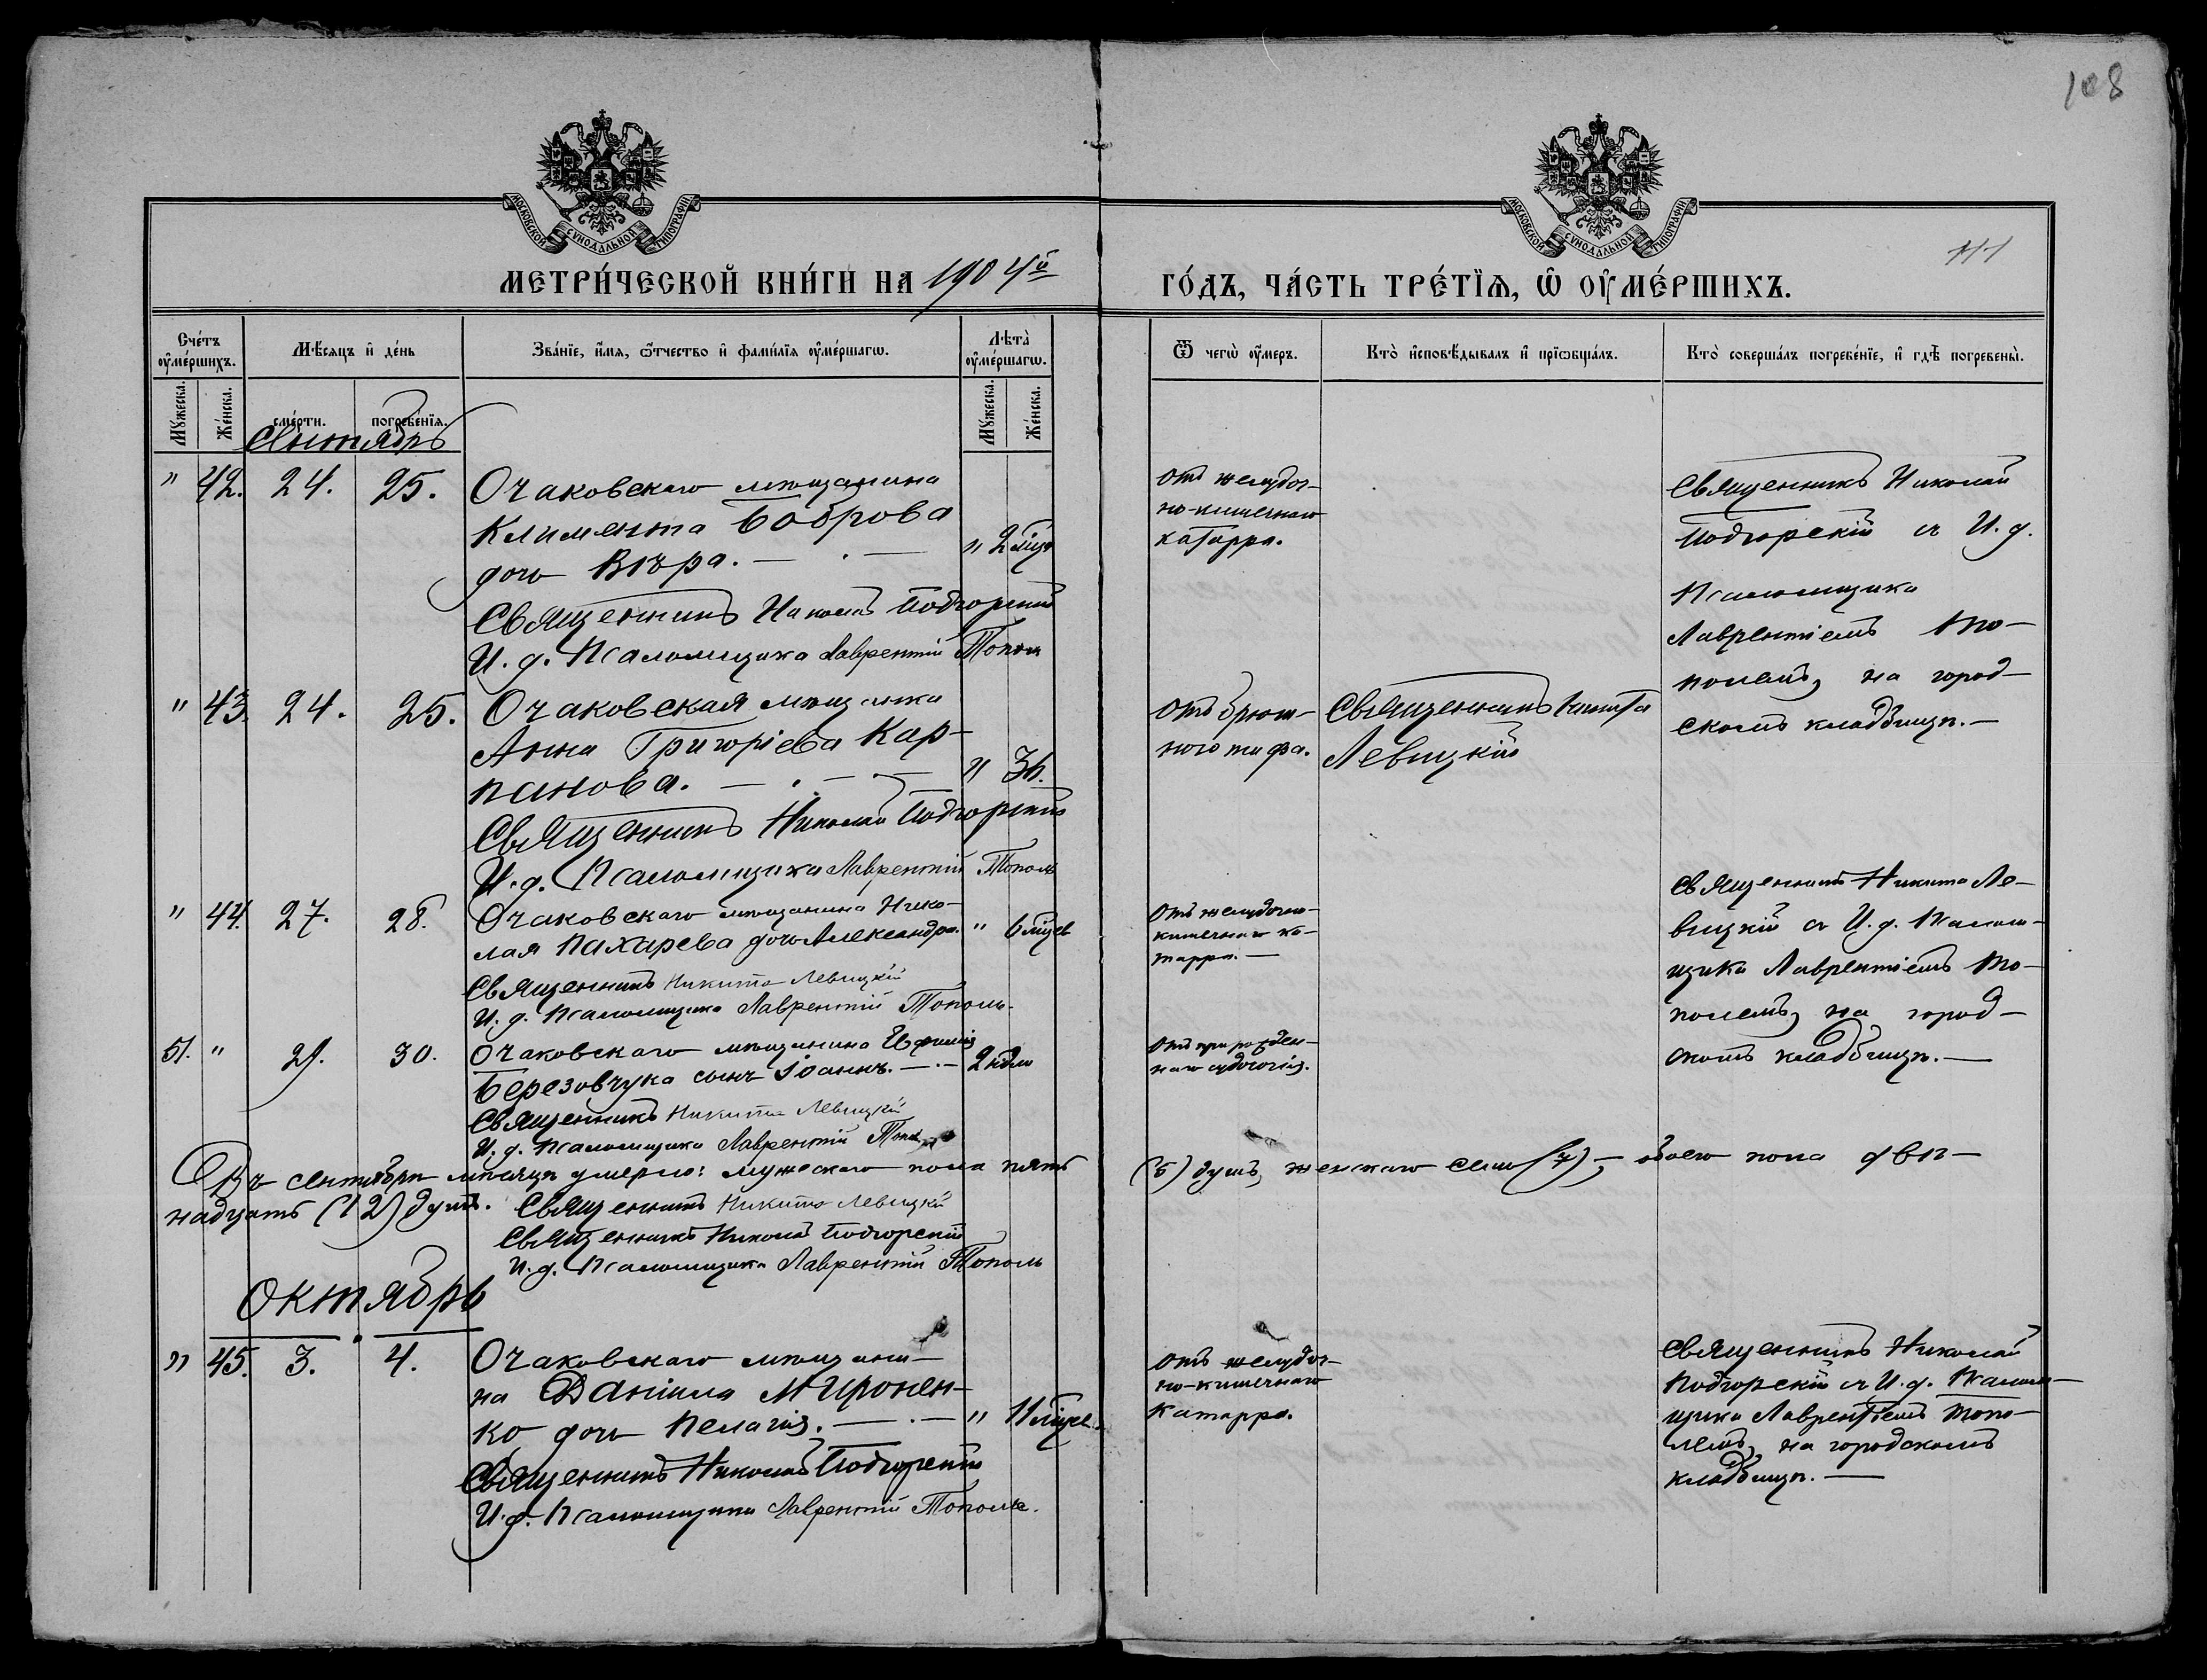 108
МОСКОВСКОЙ СУНОДАЛЬНОЙ ТИПОГРАФІИ
МОСКОВСКОЙ СУНОДАЛЬНОЙ ТИПОГРАФІИ
111
МЕТРИ́ЧЕСКОЙ КНИ́ГИ НА 1904й
ГО́ДЪ, ЧА́СТЬ ТРЕ́ТЇѦ, Ѡ ОУ҆МЕ́РШИХЪ.
Сче́тъ оу҆ме́ршихъ.
Мѣ́сѧцъ и҆ де́нь
Зва́нїе, и҆́мѧ, ѻ҆́тчество и҆ фами́лїѧ оу҆ме́ршагѡ.
Лѣта̀ оу҆ме́ршагѡ.
Ѿ чегѡ̀ оу҆́меръ.
Кто̀ и҆сповѣ́дывалъ и҆ прїѡбща́лъ.
Кто̀ соверша́лъ погребе́нїе, и҆ гдѣ̀ погребены̀.
Мꙋ́жеска.
Же́нска.
сме́рти.
погребе́нїѧ.
Мꙋ́жеска.
Же́нска.
Сентябрь
" 42. 24. 25. Очаковскаго мѣщанина
Климента Боброва
дочь Вѣра. — . — " 2 мѣц.
Священникъ Николай Подгорскій
И. д. Псаломщика Лаврентій Тополь
отъ желудоч-
но-кишечнаго
катарра.
Священникъ Николай
Подгорскій съ И. д.
Псаломщика
Лаврентіемъ То-
полемъ, на город-
скомъ кладбищѣ. —
" 43. 24. 25. Очаковская мѣщанка
Анна Григоріева Кар-
панова. — . — " 36.
Священникъ Николай Подгорскій
И. д. Псаломщика Лаврентій Тополь
отъ брюш-
ного тифа.
Священникъ Никита
Левицкій
" 44. 27. 28. Очаковскаго мѣщанина Нико-
лая Пахарева дочь Александра. " 6 мѣцев
Священникъ Никита Левицкій
И. д. Псаломщика Лаврентій Тополь
отъ желудочно-
кишечнаго ка-
тарра. —
Священникъ Никита Ле-
вицкій съ И. д. Псалом-
щика Лаврентіемъ То-
полемъ, на город-
скомъ кладбищѣ. —
51. " 29. 30. Очаковскаго мѣщанина
Березовчука сынъ Іоаннъ. — . — 2 нед.
Священникъ Никита Левицкій
И. д. Псаломщика Лаврентій Тополь
отъ прирожден-
наго
Въ Сентябрѣ мѣсяцѣ умерло: мужескаго пола пять (5) душъ, женскаго семь (7), — обоего пола двѣ-
надцать (12) душъ. Священникъ Никита Левицкій
Священникъ Николай Подгорскій
И. д. Псаломщика Лаврентій Тополь
Октябрь
" 45. 3. 4. Очаковскаго мѣщани-
на Даніила Миронен-
ко дочь Пелагія. — . — " 11 мѣцев
Священникъ Николай Подгорскій
И. д. Псаломщика Лаврентій Тополь.
отъ желудоч-
но-кишечнаго
катарра.
Священникъ Николай
Подгорскій съ И. д. Псалом-
щика Лаврентіемъ Топо-
лемъ, на городскомъ
кладбищѣ. —